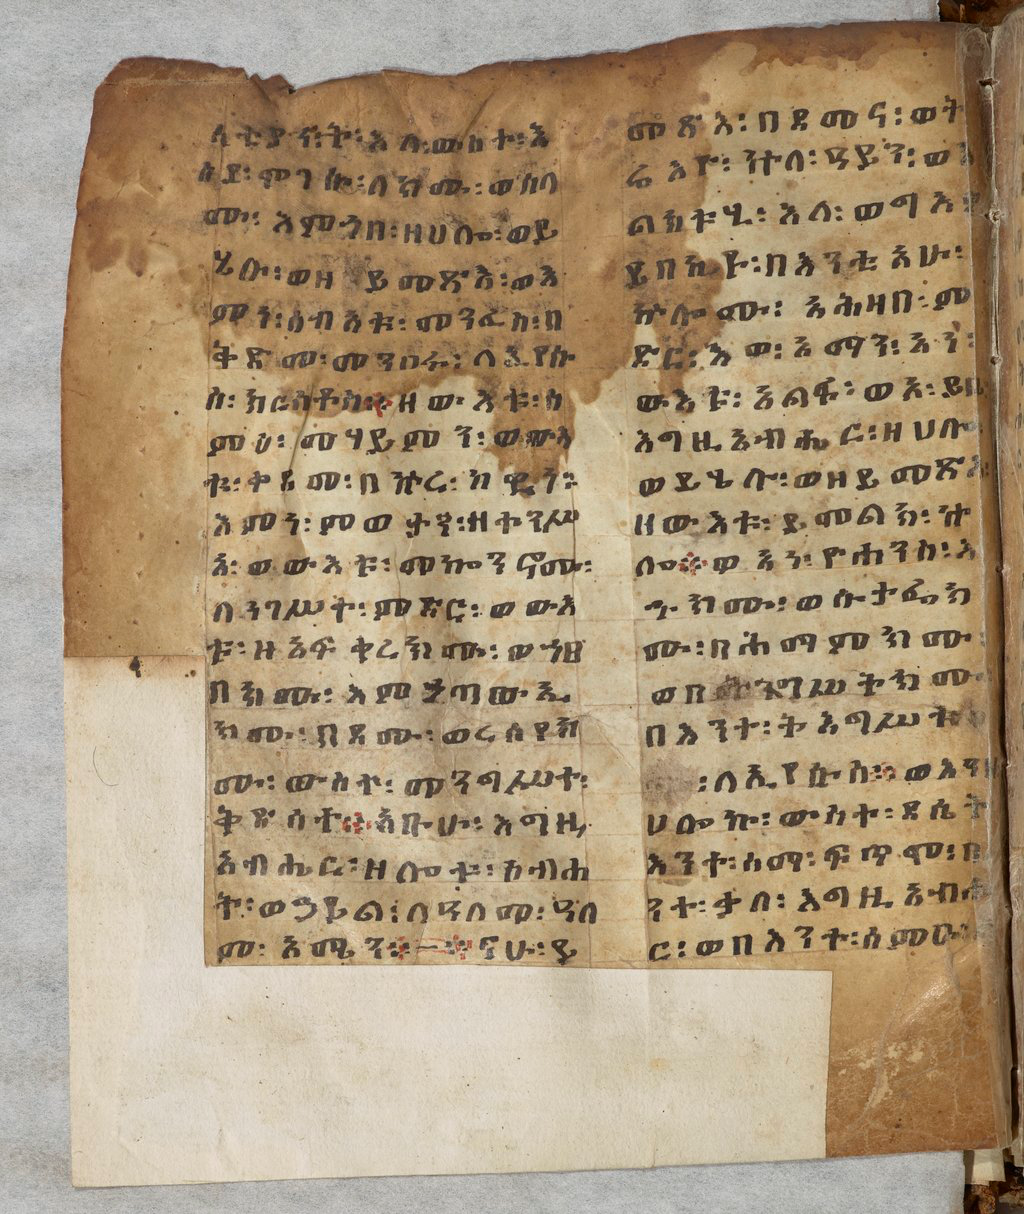 ለቲያናት፡እለ፡ውስተ፡እ
ስያ፡ሞገስ፡ለክሙ፡ወሰላ
ሙ፡እምኀበ፡ዘሀሎ፡ወይ
ሄሉ፡ወዘ ይመጽእ፡ወእ
ምነ፡ሰብአቱ፡መንፈስ፡በ
ቅድመ፡መንበሩ፡ለኢየሱ
ስ፡ክርስቶስ፨ዘውእቱ፡ስ
ምዐ፡መሃይምን፡ወውእ
ቱ፡ቀደመ፡በኵረ፡ከዊነ፡
እምነ፡ምውታን፡ዘተንሥ
አ፡ወውእቱ፡መኰንኖሙ፡
ለነገሥተ፡ምድር፡ወውእ
ቱ፡ዘአፍቀረክሙ፡ወኀፀ
በክሙ፡እምኃጣውኢ
ክሙ፡በደሙ፡ወረሰየክ
ሙ፡ውስተ፡መንግሥተ፡
ቅድሳት፨አቡሁ፡እግዚ
አብሔር፡ዘሎቱ፡ስብሐ
ት፡ወኃይል፡ለዓለመ፡ዓለ
ም፡አሜን፨ናሁ፡ይ
መጽእ፡በደመና፡ወት
ሬእዮ፡ኵሉ፡ዓይን፡ወእ
ልክቱሂ፡እለ፡ወግእ
ይበክዩ፡በእንቲአሁ፡
ኵሎሙ፡አሕዛበ፡ም
ድር፡እወ፡አማን፡አነ፡
ውእቱ፡አልፋ፡ወኦ፡ይቤ
እግዚአብሔር፡ዘሀሎ
ወይሄሉ፡ወዘይመጽእ
ዘውእቱ፡ይመልክ፡ኵ
ሎ፨ወአነ፡ዮሐንስ፡እ
ኁክሙ፡ወሱታፌክ
ሙ፡በሕማምክሙ፡
ወበመንግሥትክሙ
በእንተ፡ትዕግሥቱ
፡ለኢየሱስ፨ወእን
ሀሎኩ፡ውስተ፡ደሴት
እንተ፡ስማ፡ፍጥሞ፡በ
ንተ፡ቃለ፡እግዚአብሔ
ር፡ወበእንተ፡ስምዐ